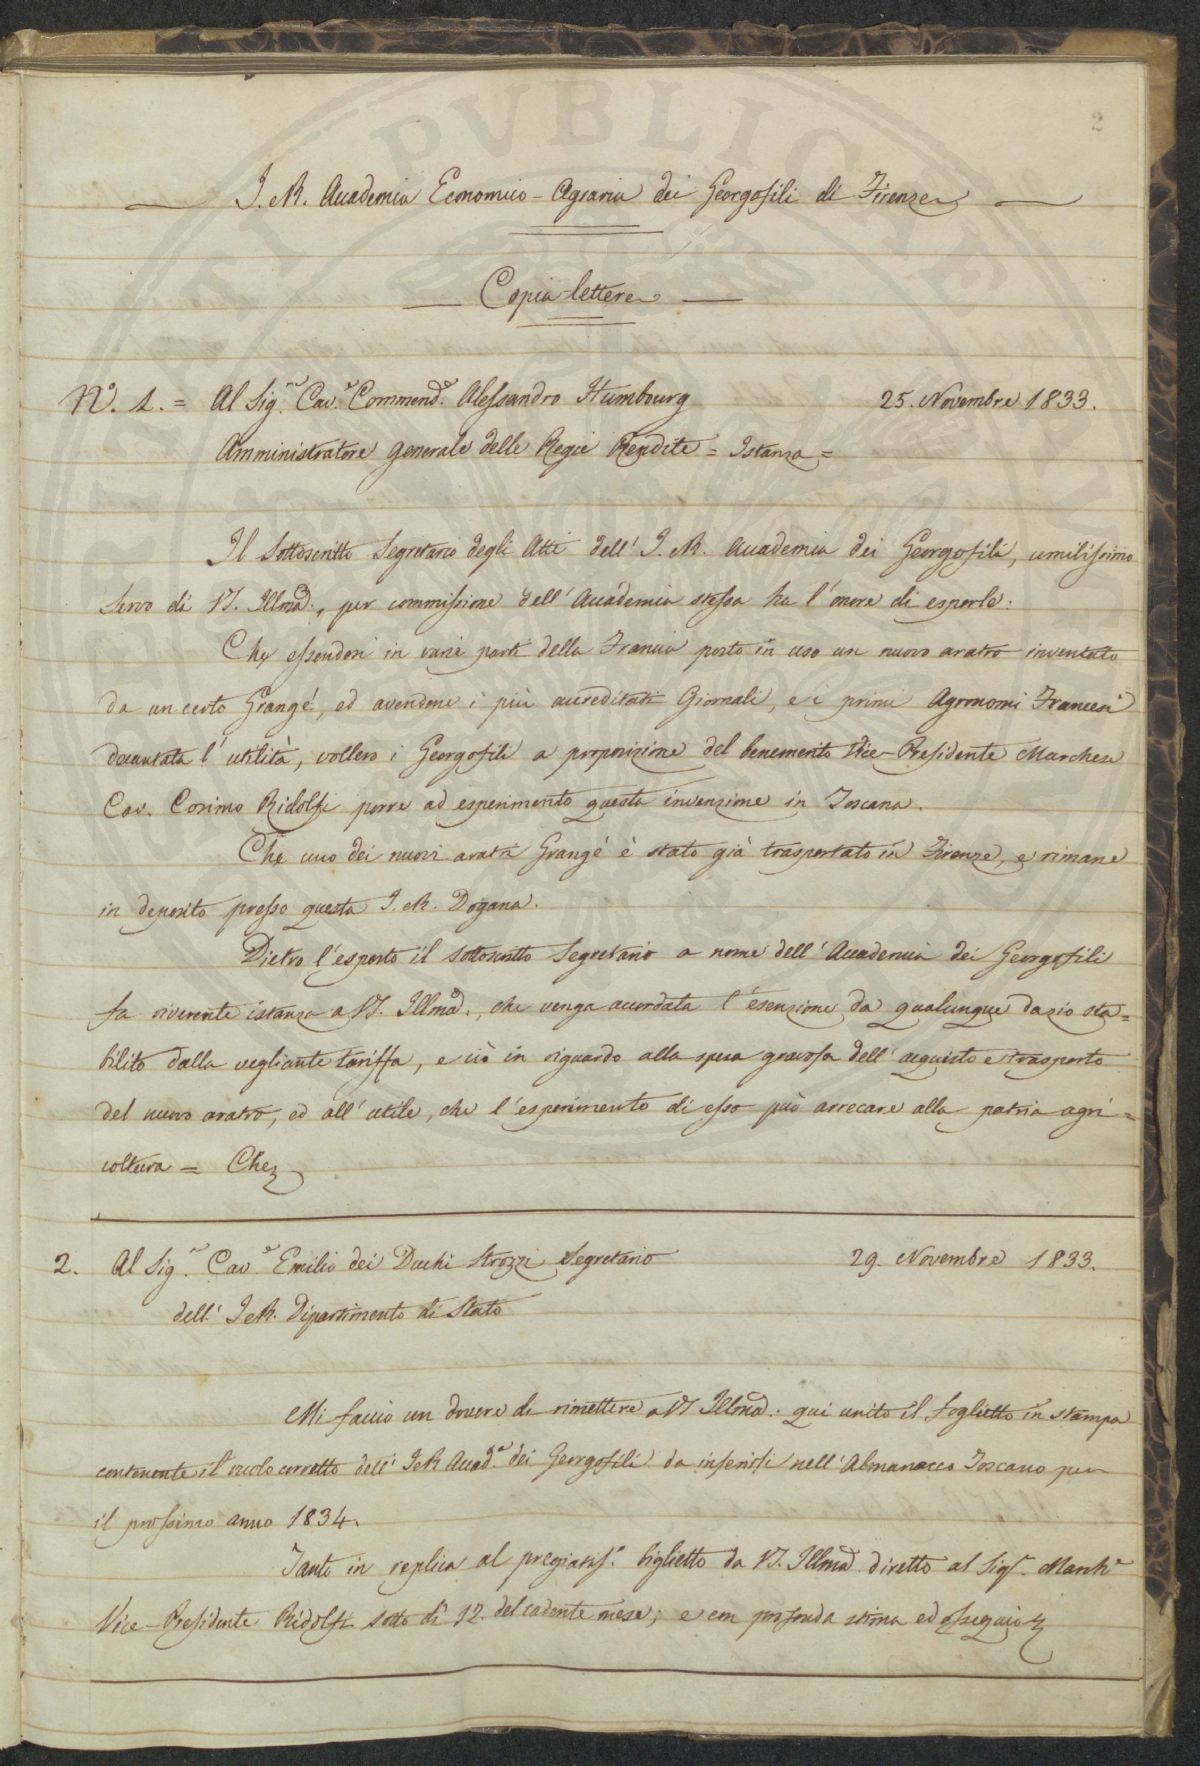 2
I. e R. Accademia Economico-Agraria dei Georgofili di Firenze
Copia-lettere
N.° 1. = Al Sig.re Cav.e Commend.e Alessandro Humbourg 25. Novembre 1833.
Amministratore Generale delle Regie Rendite = Istanza =
Il Sottoscritto Segretario degli Atti dell' I. e R. Accademia dei Georgofili, umilissimo
Servo di VS. Illma., per commissione dell' Accademia stessa ha l'onore di esporle:
Che essendosi in varie parti della Francia posto in uso un nuovo aratro inventato
da un certo Grangé, ed avendone i più accreditati Giornali, e i primi Agronomi Francesi
decantata l'utilità, vollero i Georgofili a proposizione del benemerito Vice-Presidente Marchese
Cav. Cosimo Ridolfi porre ad esperimento questa invenzione in Toscana.
Che uno dei nuovi aratri Grangé è stato già trasportato in Firenze, e rimane
in deposito presso questa I. e R. Dogana.
Dietro l'esposto il sottoscritto Segretario a nome dell' Accademia dei Georgofili
fa riverente istanza a VS. Illma., che venga accordata l'esenzione da qualunque dazio sta=
bilito dalla vegliante tariffa, e ciò in riguardo alla spesa gravosa dell' acquisto e trasporto
del nuovo aratro, ed all' utile, che l'esperimento di esso può arrecare alla patria agri=
coltura = Che
2. Al Sig.re Cav.e Emilio dei Duchi Strozzi Segretario 29. Novembre 1833.
dell' I e R. Dipartimento di Stato
Mi faccio un dovere di rimettere a VS Illma. qui unito il foglietto in stampa
contenente il ruolo corretto dell' I e R Accad.a dei Georgofili da inserirsi nell' Almanacco Toscano per
il prossimo anno 1834.
Tanto in replica al pregiatis.o biglietto da VS. Illma diretto al Sig.r March.e
Vice-Presidente Ridolfi sotto dì 12. del cadente mese; e con profonda stima ed ossequio